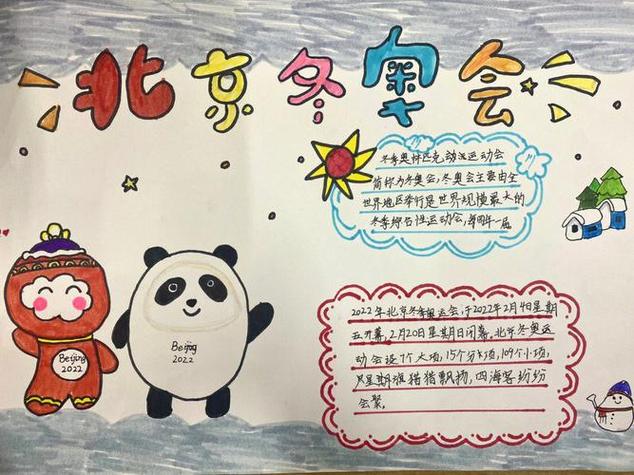 北京冬奥会
冬季奥林匹克动汉运动会
简称为冬奥会,冬奥会主要由全
世界地区举行是世界规模最大的
冬季综合性运动会,每四年一届
2022年北京冬季奥运会,于2022年2月4日星期
五开幕,2月20日星期日闭幕,北京冬奥运
动会设7个大项,15个分项,109个小项,
星期 猎猎飘扬,四海客纷纷
会聚.
Beijing
2022
Beijing
2022